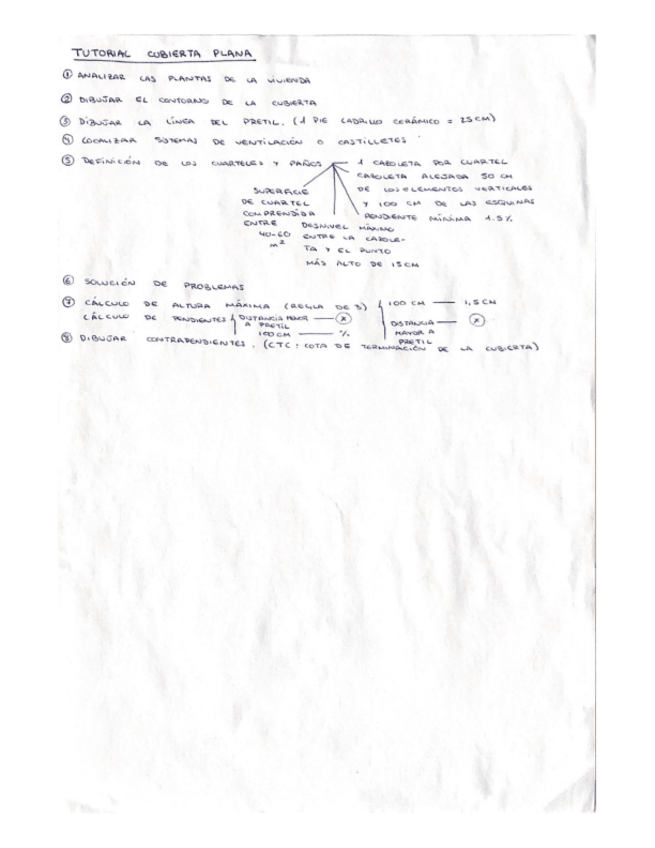 TUTORIAL CUBIERTA PLANA
① ANALIZAR LAS PLANTAS DE LA VIVIENDA
② DIBUJAR EL CONTORNO DE LA CUBIERTA
③ DIBUJAR LA LÍNEA DEL PRETIL. (1 PIE LADRILLO CERÁMICO = 25CM)
④ LOCALIZAR SISTEMAS DE VENTILACIÓN O CASTILLETES
⑤ DEFINICIÓN DE LOS CUARTELES Y PAÑOS
1 CAZOLETA POR CUARTEL
CAZOLETA ALEJADA 50 CM
DE LOS ELEMENTOS VERTICALES
Y 100 CM DE LAS ESQUINAS
PENDIENTE MÍNIMA 1.5%
SUPERFICIE
DE CUARTEL
COMPRENDIDA
ENTRE
40-60
m²
DESNIVEL MÁXIMO
ENTRE LA CAZOLE-
TA Y EL PUNTO
MÁS ALTO DE 15CM
⑥ SOLUCIÓN DE PROBLEMAS
⑦ CÁLCULO DE ALTURA MÁXIMA (REGLA DE 3)
100 CM — 1,5 CM
DISTANCIA — X
MAYOR A
PRETIL
CÁLCULO DE PENDIENTES
DISTANCIA MENOR — X
A PRETIL
100CM — %
⑧ DIBUJAR CONTRAPENDIENTES. (CTC: COTA DE TERMINACIÓN DE LA CUBIERTA)